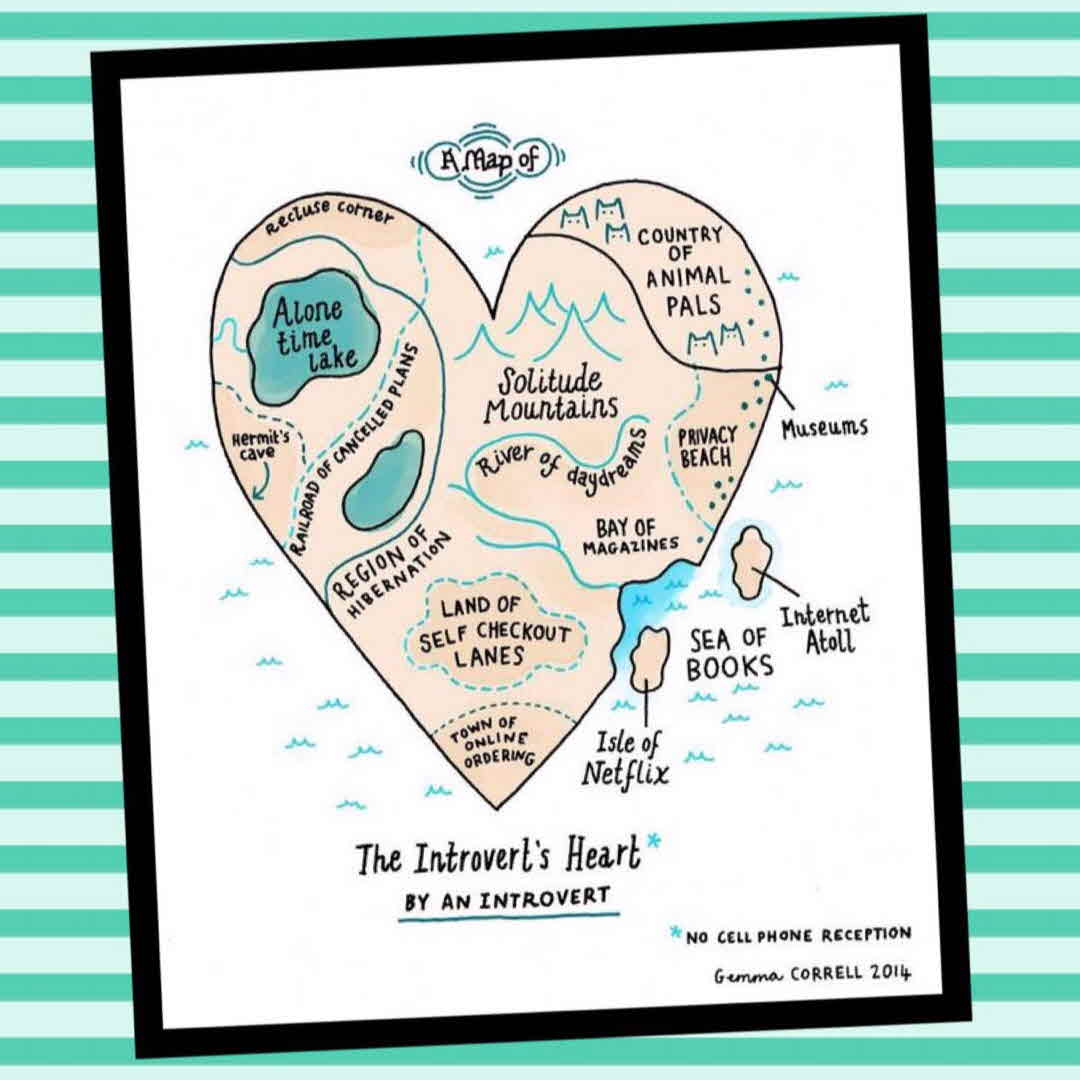 A Map of
Recluse corner
Alone
time
lake
Hermit's
cave
RAILROAD OF CANCELLED PLANS
REGION OF
HIBERNATION
COUNTRY
OF
ANIMAL
PALS
Solitude
Mountains
River of daydreams
PRIVACY
BEACH
Museums
BAY OF
MAGAZINES
LAND OF
SELF CHECKOUT
LANES
TOWN OF
ONLINE
ORDERING
Internet
Atoll
SEA OF
BOOKS
Isle of
Netflix
The Introvert's Heart*
BY AN INTROVERT
*NO CELL PHONE RECEPTION
Gemma CORRELL 2014